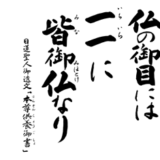 仏の御目には
一一に
皆御仏なり
日蓮聖人御遺文『本尊供養御書』